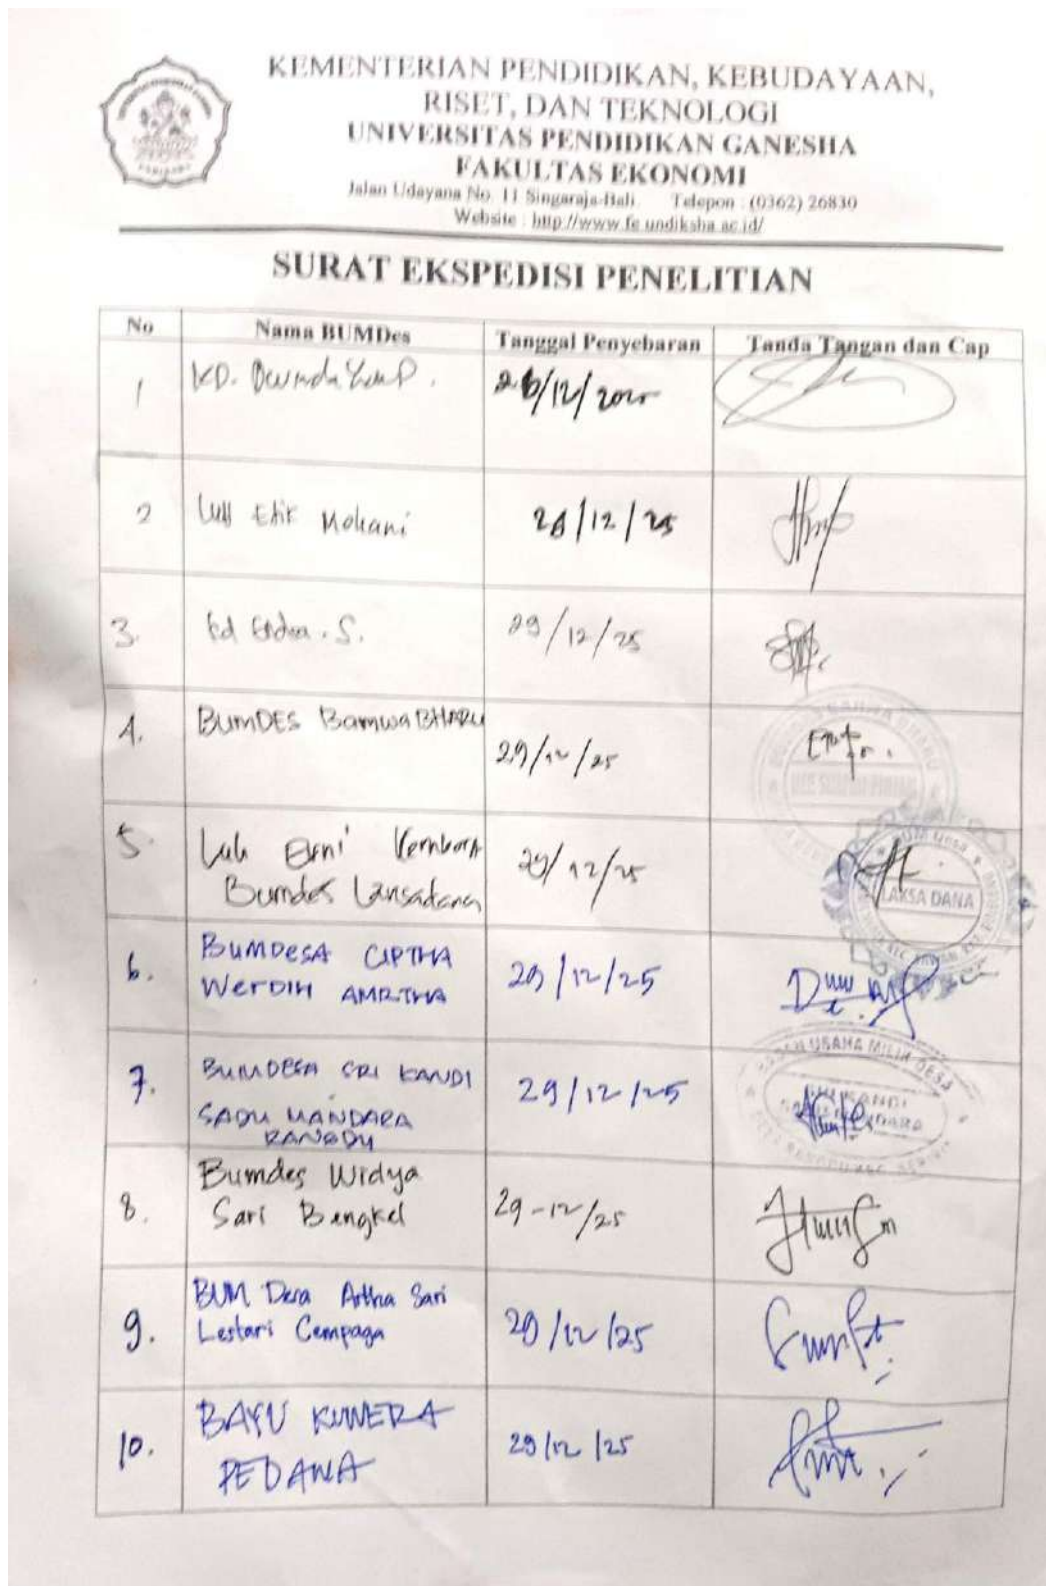 KEMENTERIAN PENDIDIKAN, KEBUDAYAAN,
RISET, DAN TEKNOLOGI
UNIVERSITAS PENDIDIKAN GANESHA
FAKULTAS EKONOMI
Jalan Udayana No. 11 Singaraja-Bali Telepon : (0362) 26830
Website : http://www.fe.undiksha.ac.id/
SURAT EKSPEDISI PENELITIAN
No Nama BUMDes Tanggal Penyebaran Tanda Tangan dan Cap
1 KD. 26/12/2025
2 Luh Etik Mohani 26/12/25
3. Kd Endra . S. 29/12/25
4. BUMDES Bamwa BHARU 29/12/25
5. Luh Erni 29/12/25
Bumdes Laksadana
LAKSA DANA
6. BUMDESA CIPTHA 29/12/25
WERDIH AMRTHA
7. BUMDESA SRI KANDI 29/12/25
SADU MANDARA
RANGDU
BADAN USAHA MILIK DESA
8. Bumdes Widya 29-12/25
Sari Bengkel
9. BUM Desa Artha Sari 29/12/25
Lestari Cempaga
10. BAYU KUWERA 29/12/25
PEDAWA